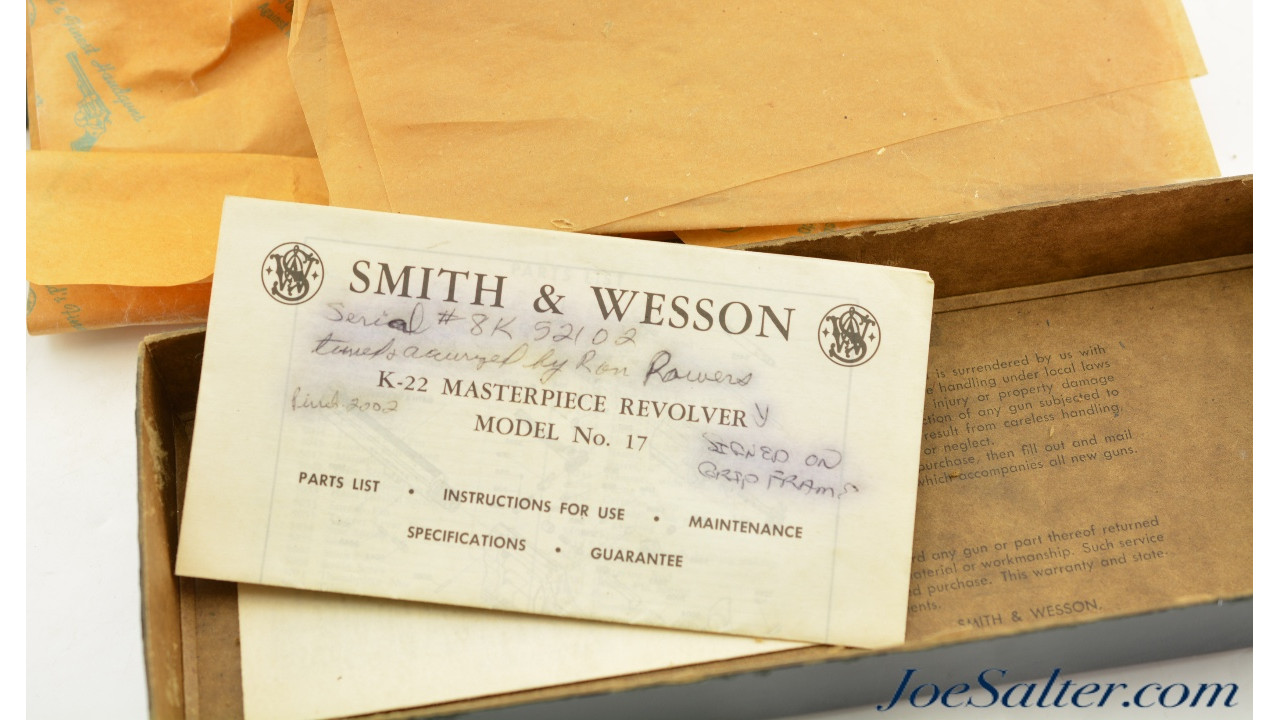 Finest Handguns
SMITH & WESSON
Serial # 8K 52102
tuned & accurized by Ron Rowers
K-22 MASTERPIECE REVOLVER
MODEL No. 17
2002
SIGNED ON
GRIP FRAME
PARTS LIST • INSTRUCTIONS FOR USE • MAINTENANCE
SPECIFICATIONS • GUARANTEE
is surrendered by us with
handling under local laws
injury or property damage
ction of any gun subjected to
result from careless handling,
or neglect.
purchase, then fill out and mail
which accompanies all new guns.
d any gun or part thereof returned
aterial or workmanship. Such service
d purchase. This warranty and state-
ents.
SMITH & WESSON.
JoeSalter.com